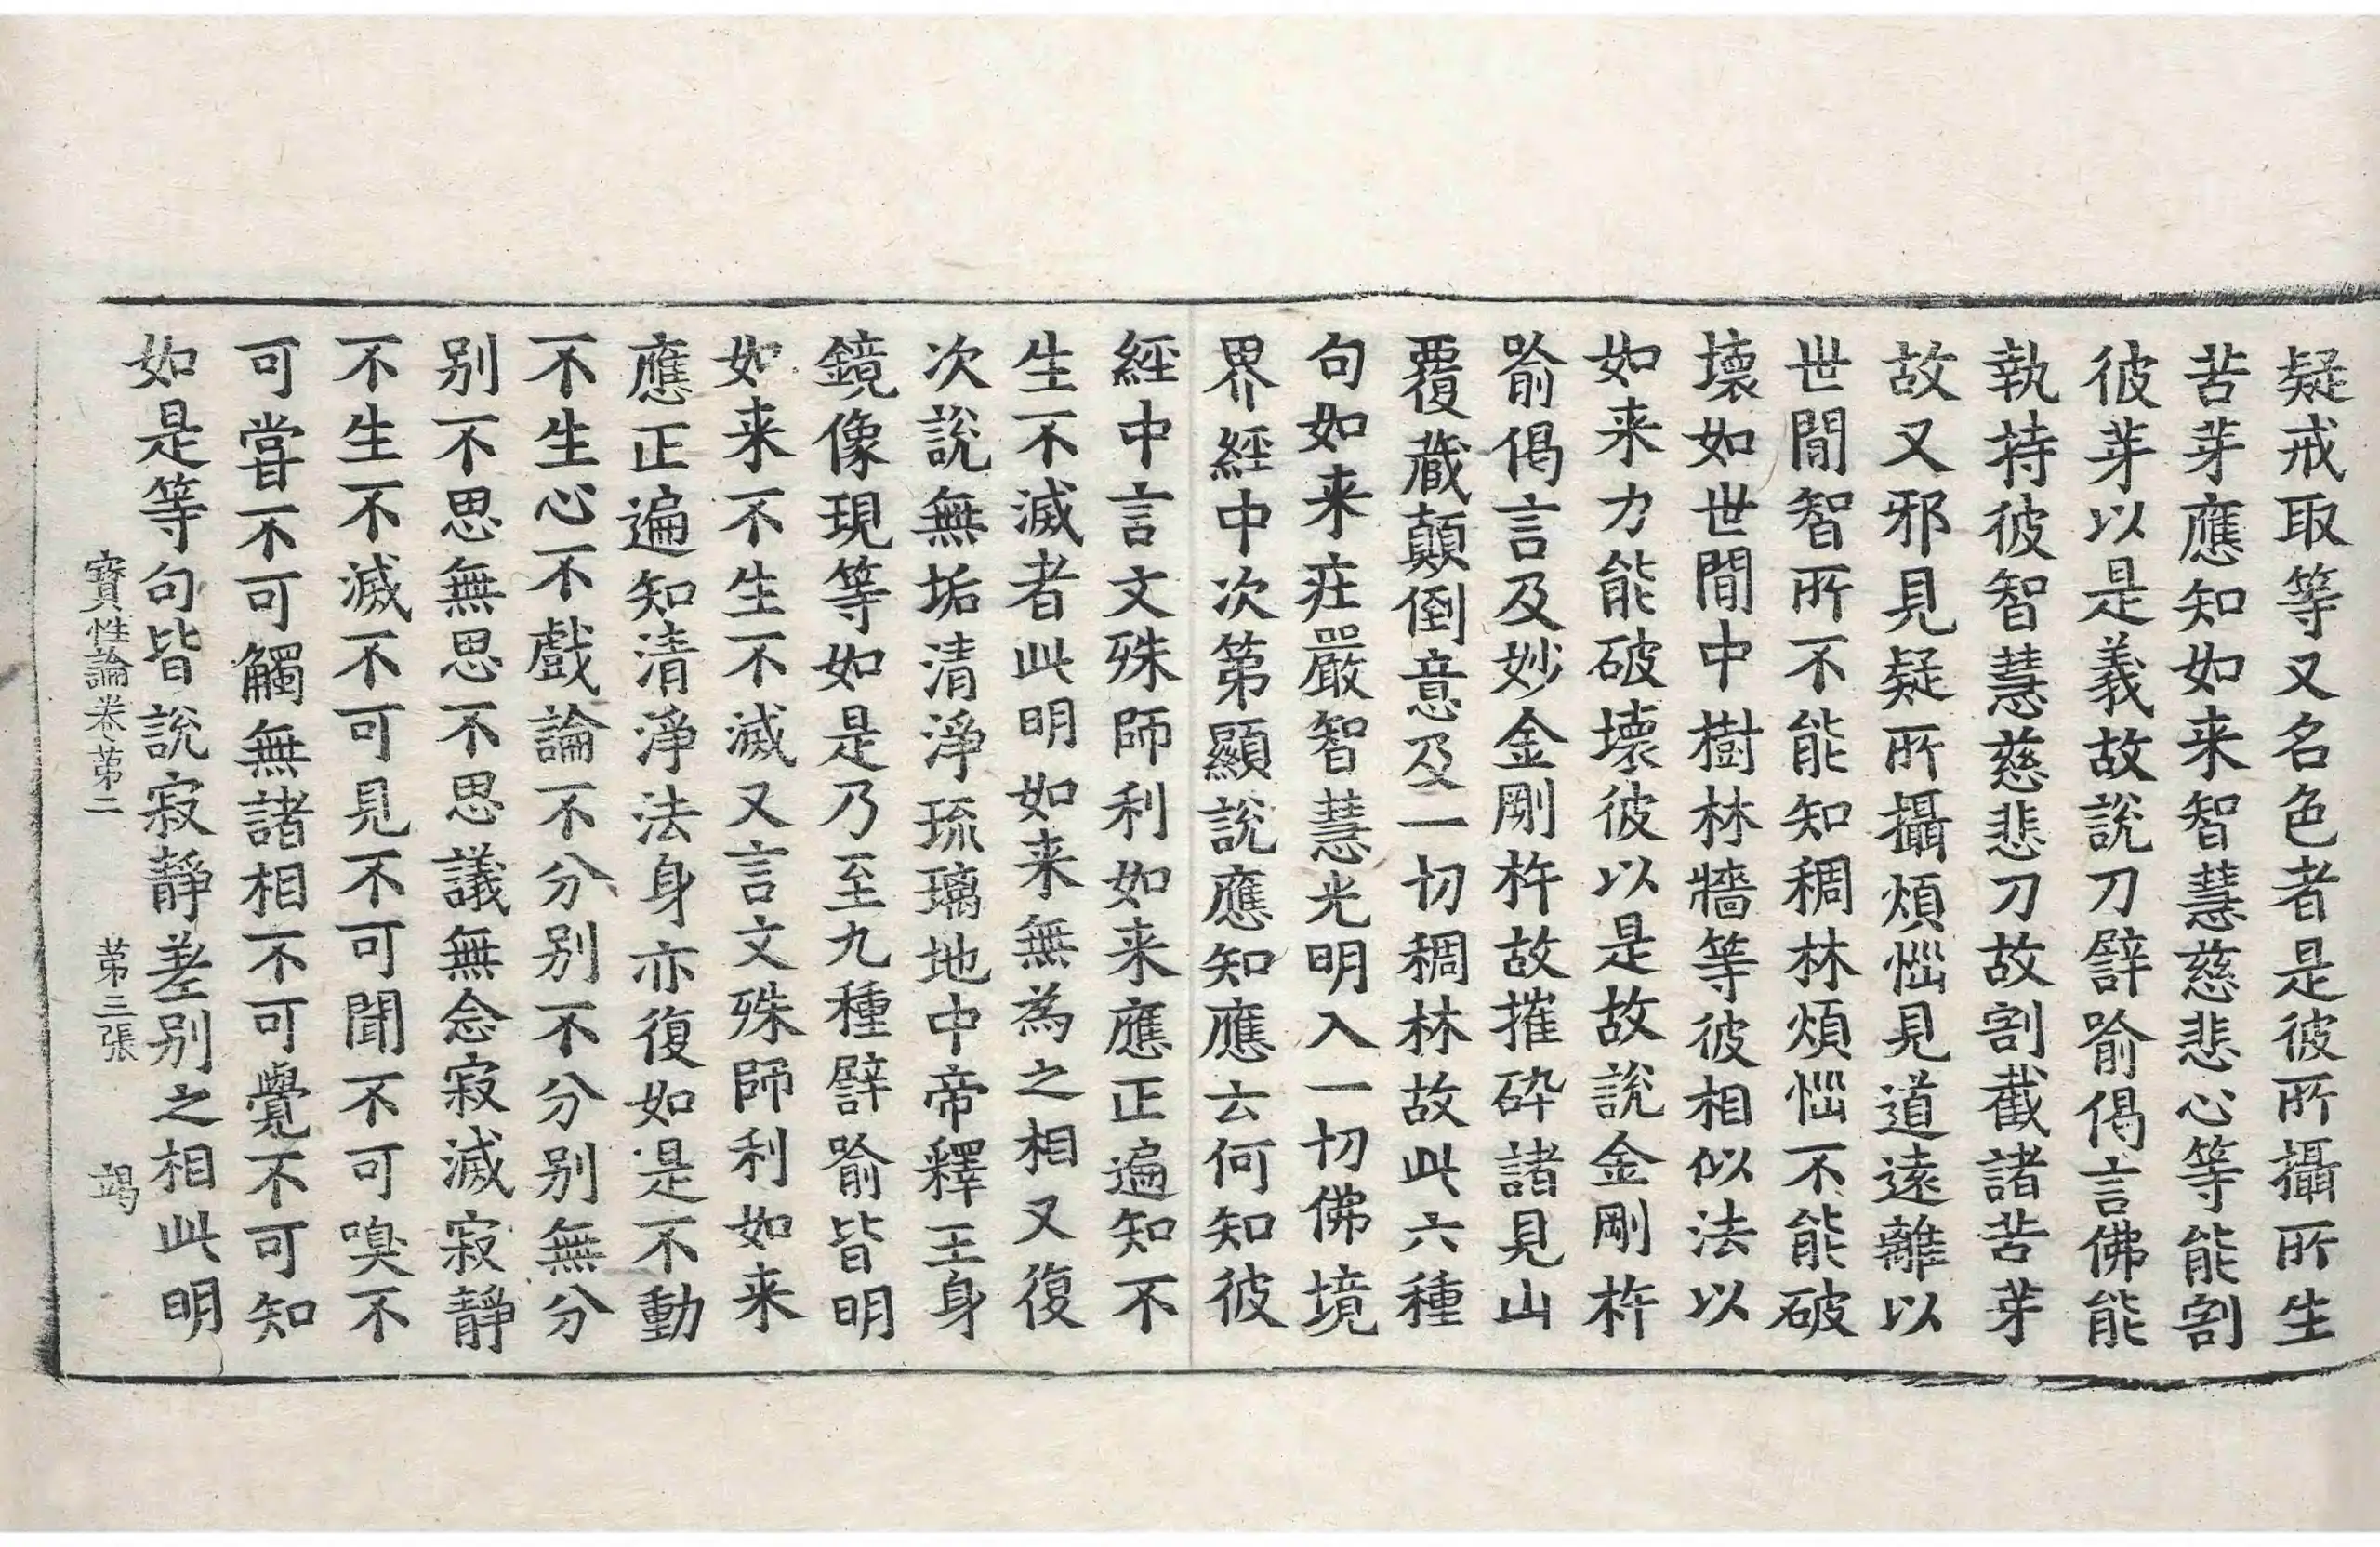 疑戒取等又名色者是彼所攝所生
苦芽應知如来智慧慈悲心等能割
彼芽以是義故說刀譬喻偈言佛能
執持彼智慧慈悲刀故割截諸苦芽
故又邪見疑所攝煩惱見道遠離以
世間智所不能知稠林煩惱不能破
壞如世間中樹林牆等彼相似法以
如来力能破壞彼以是故說金剛杵
喻偈言及妙金剛杵故摧碎諸見山
覆藏顛倒意及一切稠林故此六種
句如来莊嚴智慧光明入一切佛境
界經中次第顯說應知應云何知彼
經中言文殊師利如来應正遍知不
生不滅者此明如来無為之相又復
次說無垢清淨琉璃地中帝釋王身
鏡像現等如是乃至九種譬喻皆明
如来不生不滅又言文殊師利如来
應正遍知清淨法身亦復如是不動
不生心不戲論不分別不分別無分
別不思無思不思議無念寂滅寂靜
不生不滅不可見不可聞不可嗅不
可嘗不可觸無諸相不可覺不可知
如是等句皆說寂靜差別之相此明
寶性論卷第二 第三張 竭